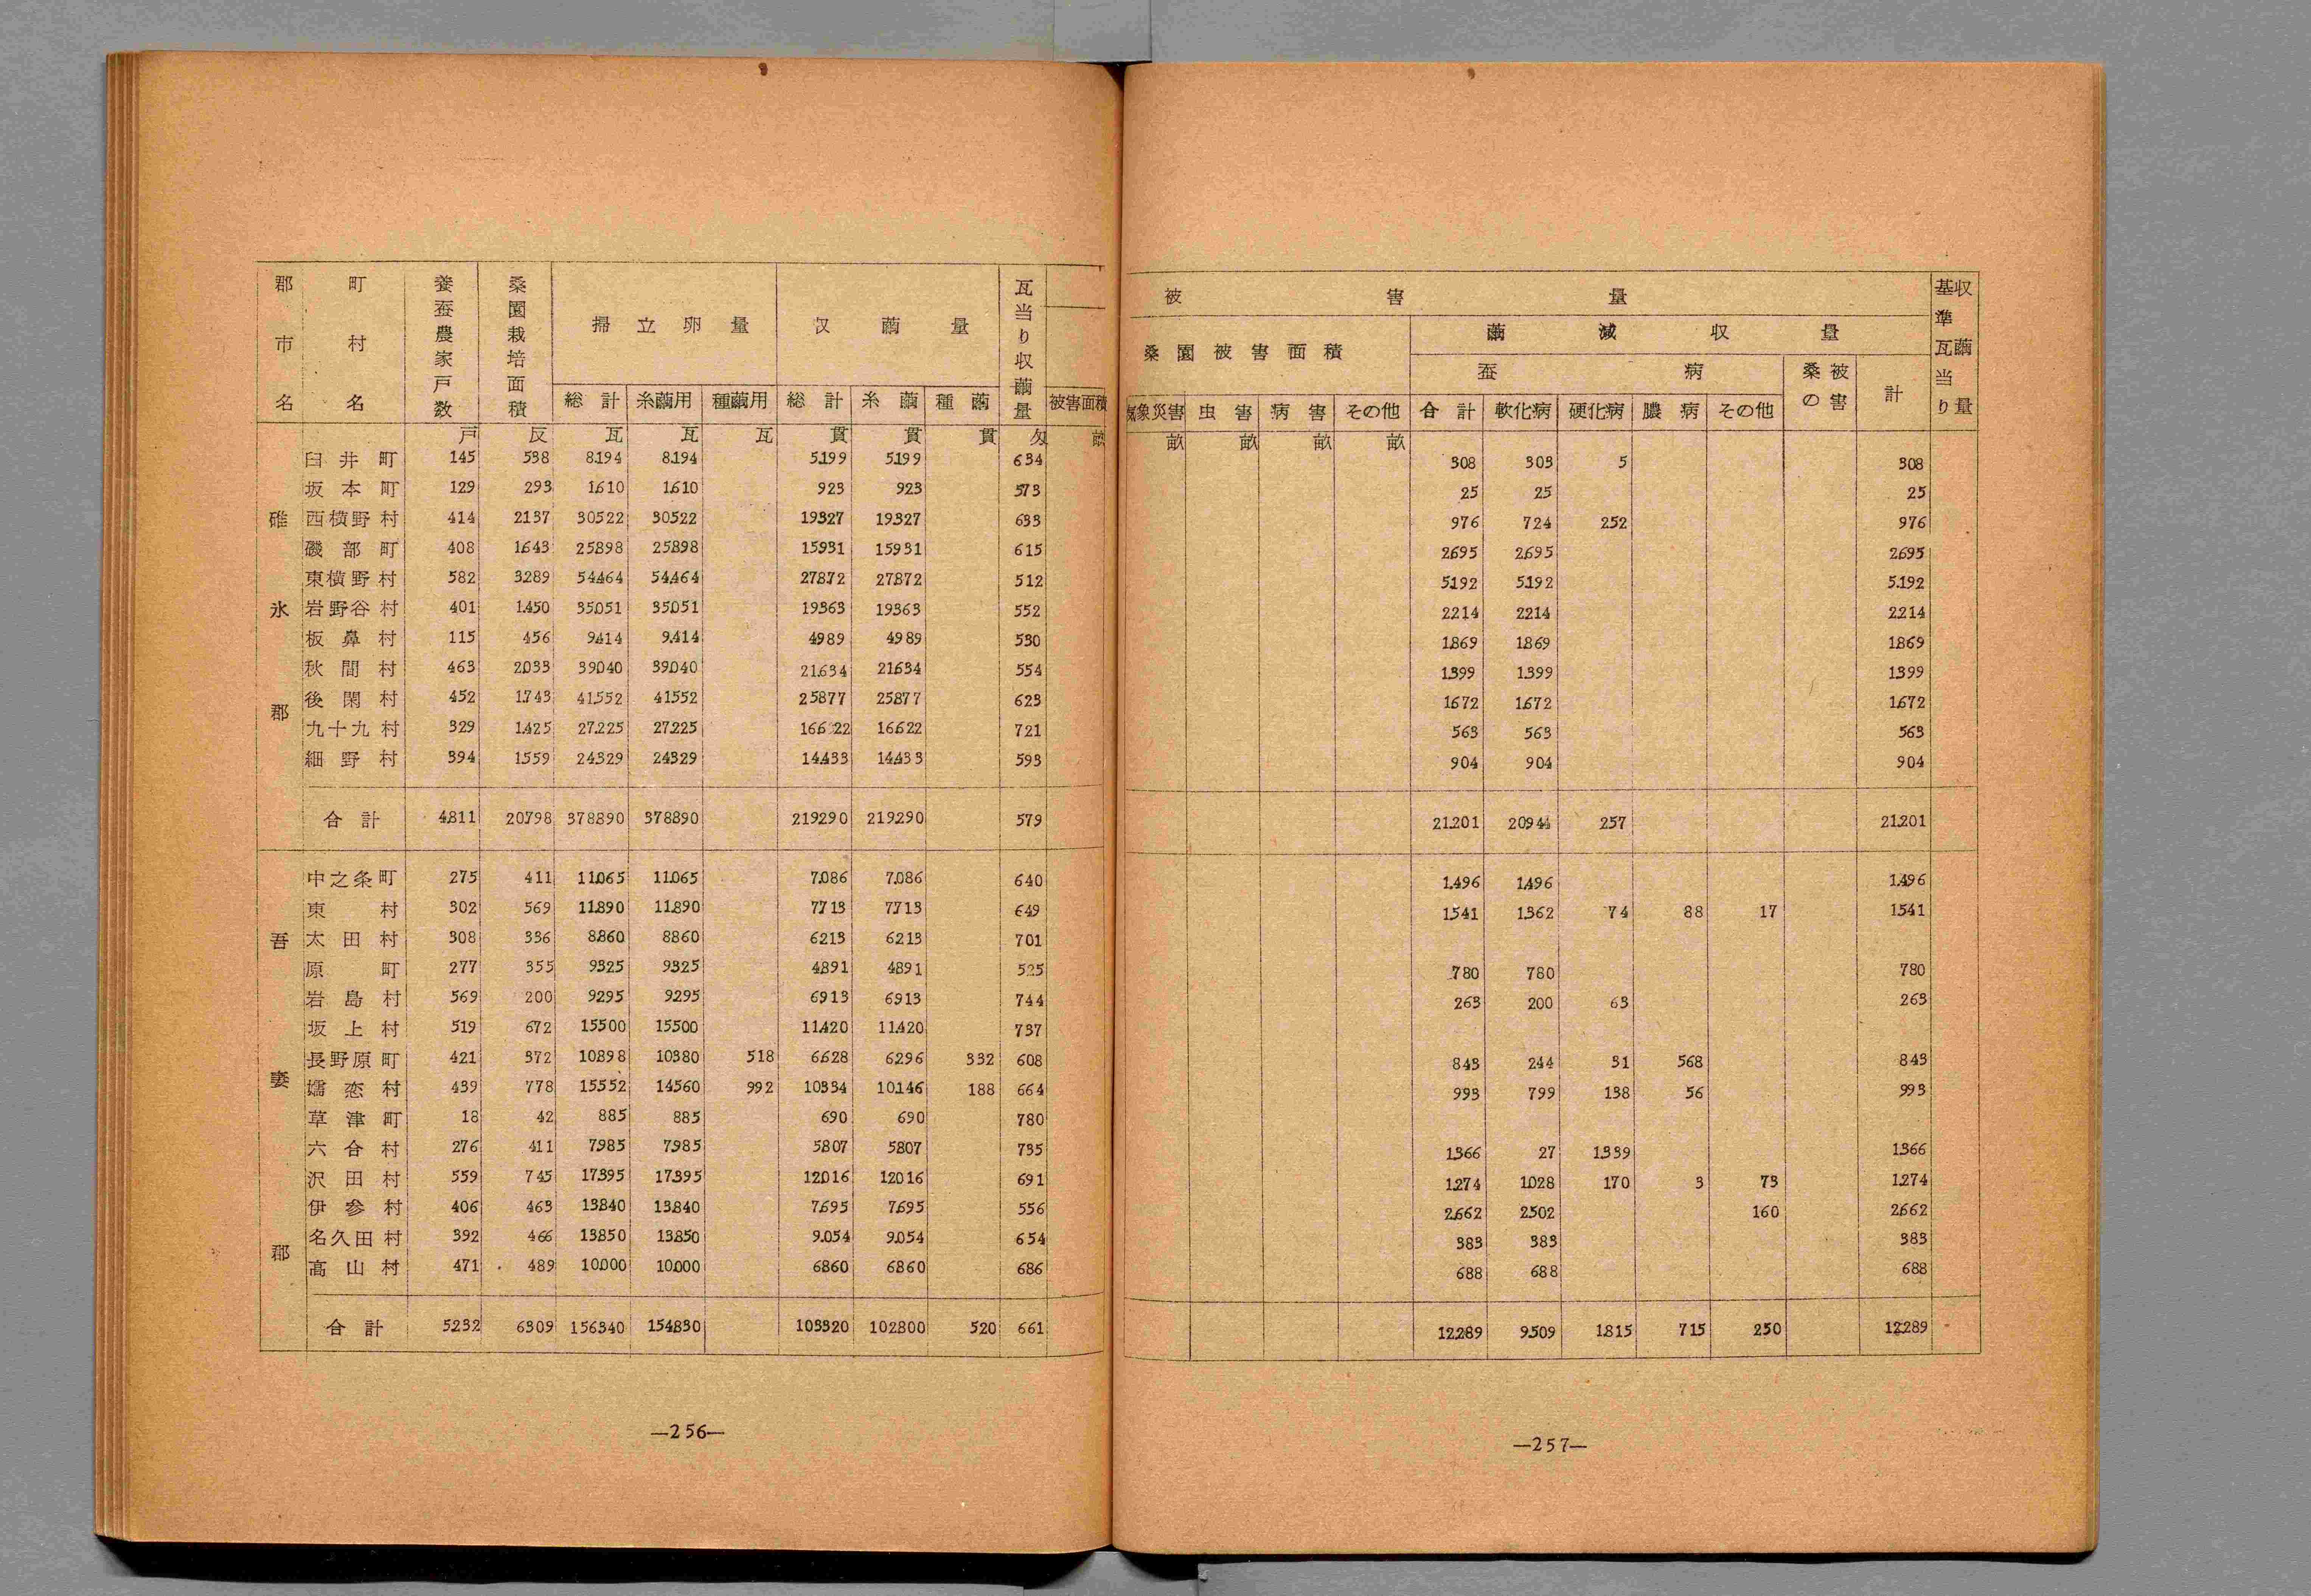 郡市名 町村名 養蚕農家戸数 桑園栽培面積 掃立卵量 収繭量 瓦当り収繭量
総計 糸繭用 種繭用 総計 糸繭 種繭 被害面積
戸 反 瓦 瓦 瓦 貫 貫 貫 匁 畝
碓氷郡
臼井町 145 538 8194 8194 5199 5199 634
坂本町 129 293 1610 1610 923 923 573
西横野村 414 2137 30522 30522 19327 19327 633
磯部町 408 1643 25898 25898 15931 15931 615
東横野村 582 3289 54464 54464 27872 27872 512
岩野谷村 401 1450 35051 35051 19363 19363 552
板鼻村 115 456 9414 9414 4989 4989 530
秋間村 463 2033 39040 39040 21634 21634 554
後閑村 452 1743 41552 41552 25877 25877 623
九十九村 329 1425 27225 27225 16622 16622 721
細野村 394 1559 24329 24329 14433 14433 593
合計 4811 20798 378890 378890 219290 219290 579
吾妻郡
中之条町 275 411 11065 11065 7086 7086 640
東村 302 569 11890 11890 7713 7713 649
太田村 308 336 8860 8860 6213 6213 701
原町 277 355 9325 9325 4891 4891 525
岩島村 569 200 9295 9295 6913 6913 744
坂上村 519 672 15500 15500 11420 11420 737
長野原町 421 372 10898 10380 518 6628 6296 332 608
嬬恋村 439 778 15552 14560 992 10334 10146 188 664
草津町 18 42 885 885 690 690 780
六合村 276 411 7985 7985 5807 5807 735
沢田村 559 745 17395 17395 12016 12016 691
伊参村 406 463 13840 13840 7695 7695 556
名久田村 392 466 13850 13850 9054 9054 654
高山村 471 489 10000 10000 6860 6860 686
合計 5232 6309 156340 154830 103320 102800 520 661
—256—
被害量 基準瓦当り収繭量
桑園被害面積 繭減収量
蚕病 桑の被害 計
気象災害 虫害 病害 その他 合計 軟化病 硬化病 膿病 その他
畝 畝 畝 畝
308 303 5 308
25 25 25
976 724 252 976
2695 2695 2695
5192 5192 5192
2214 2214 2214
1869 1869 1869
1399 1399 1399
1672 1672 1672
563 563 563
904 904 904
21201 20944 257 21201
1496 1496 1496
1541 1362 74 88 17 1541
780 780 780
263 200 63 263
843 244 31 568 843
993 799 138 56 993
1366 27 1339 1366
1274 1028 170 3 73 1274
2662 2502 160 2662
383 383 383
688 688 688
12289 9509 1815 715 250 12289
—257—